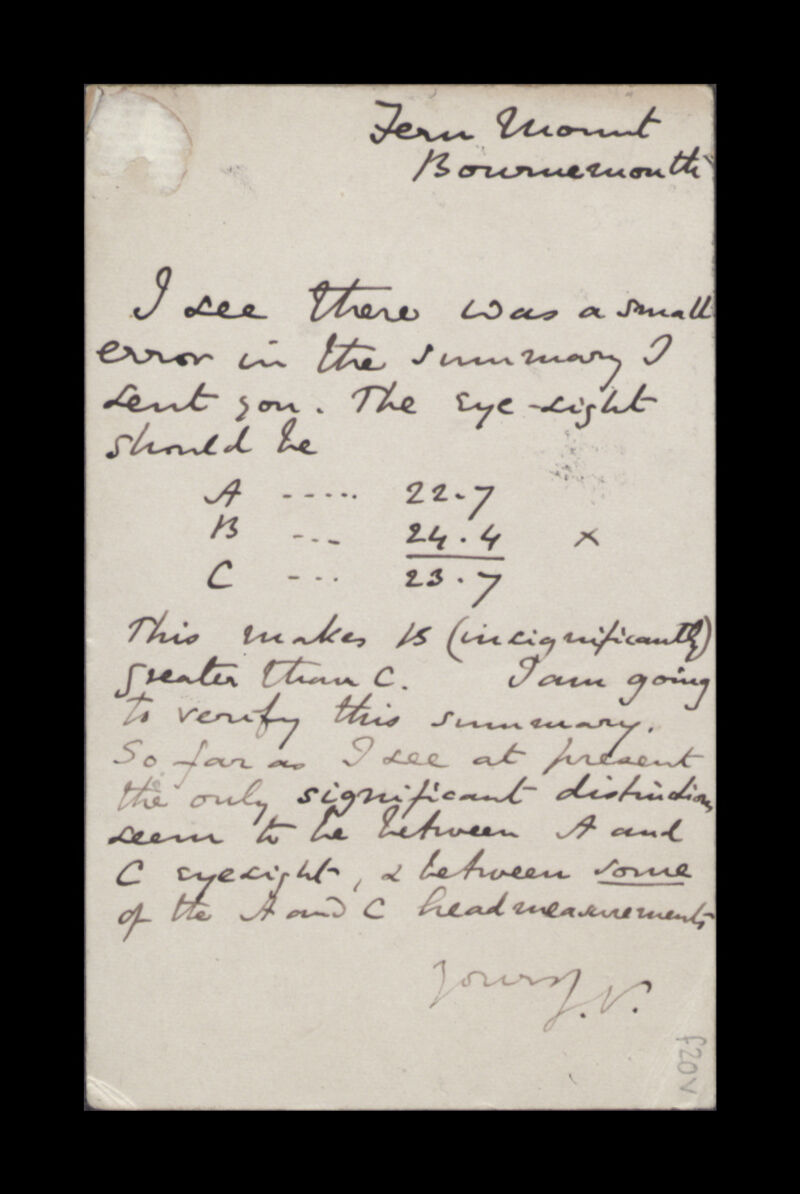 Fern Mount
Bournemouth
I see there was a small
error in the summary I
sent you. The eye-sight
should be
A ----- 22.7
B --- 24.4 x
C --- 23.7
This makes B (insignificantly)
greater than C. I am going
to verify this summary.
So far as I see at present
the only significant distinctions
seem to be between A and
C eyesight, & between some
of the A and C head measurements
Yours J.V.
f20v